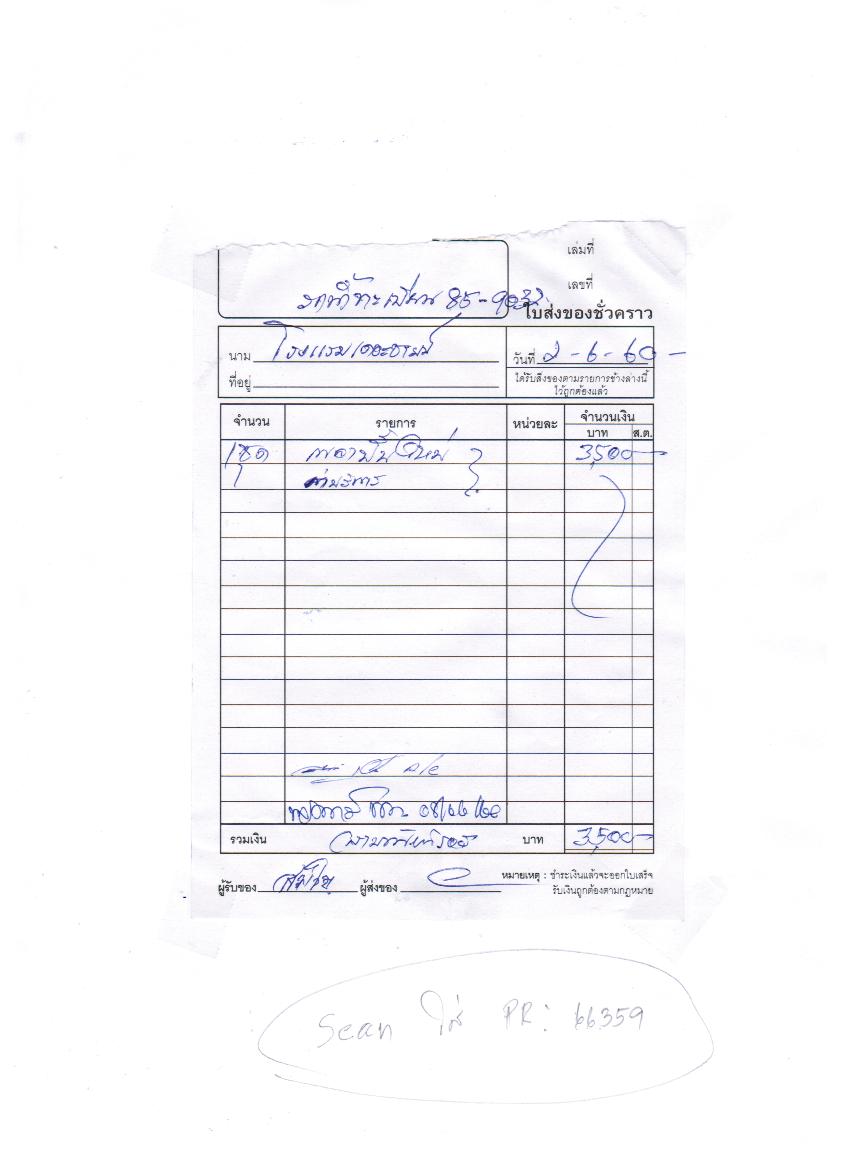 เล่มที่
เลขที่
รถทะเบียน 85-9032
ใบส่งของชั่วคราว
นาม โรงแรม
วันที่ 2-6-60-
ที่อยู่
ได้รับสิ่งของตามรายการข้างล่างนี้
ไว้ถูกต้องแล้ว
จำนวน รายการ หน่วยละ จำนวนเงิน
บาท ส.ต.
1ชุด 3,500-
ค่าบริการ
รวมเงิน สามพันห้าร้อย บาท 3,500-
ผู้รับของ ผู้ส่งของ
หมายเหตุ : ชำระเงินแล้วจะออกใบเสร็จ
รับเงินถูกต้องตามกฎหมาย
Scan ใส่ PR: 66359